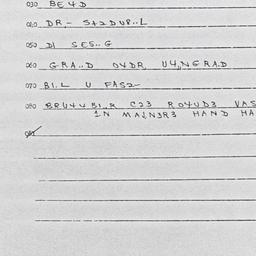 030 BE4D
040 DR,- S+2DUP..L
050 DI SES..G
060 GRA..D OVDR U4,,NGRAD
070 BIL U FAS2
080 BRU4U BI,,R C23 ROYUD3 VAS
IN MAI,N3R3 HAND HA